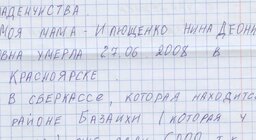 ЛАДЕНЧИСТВА
МОЯ МАМА - ИЛЮЩЕНКО НИНА ЛЕОНИ
ВНА УМЕРЛА 27.06 2008 В
КРАСНОЯРСКЕ.
В СБЕРКАССЕ, КОТОРАЯ НАХОДИТС
РАЙОНЕ БАЗАИХИ (КОТОРАЯ У